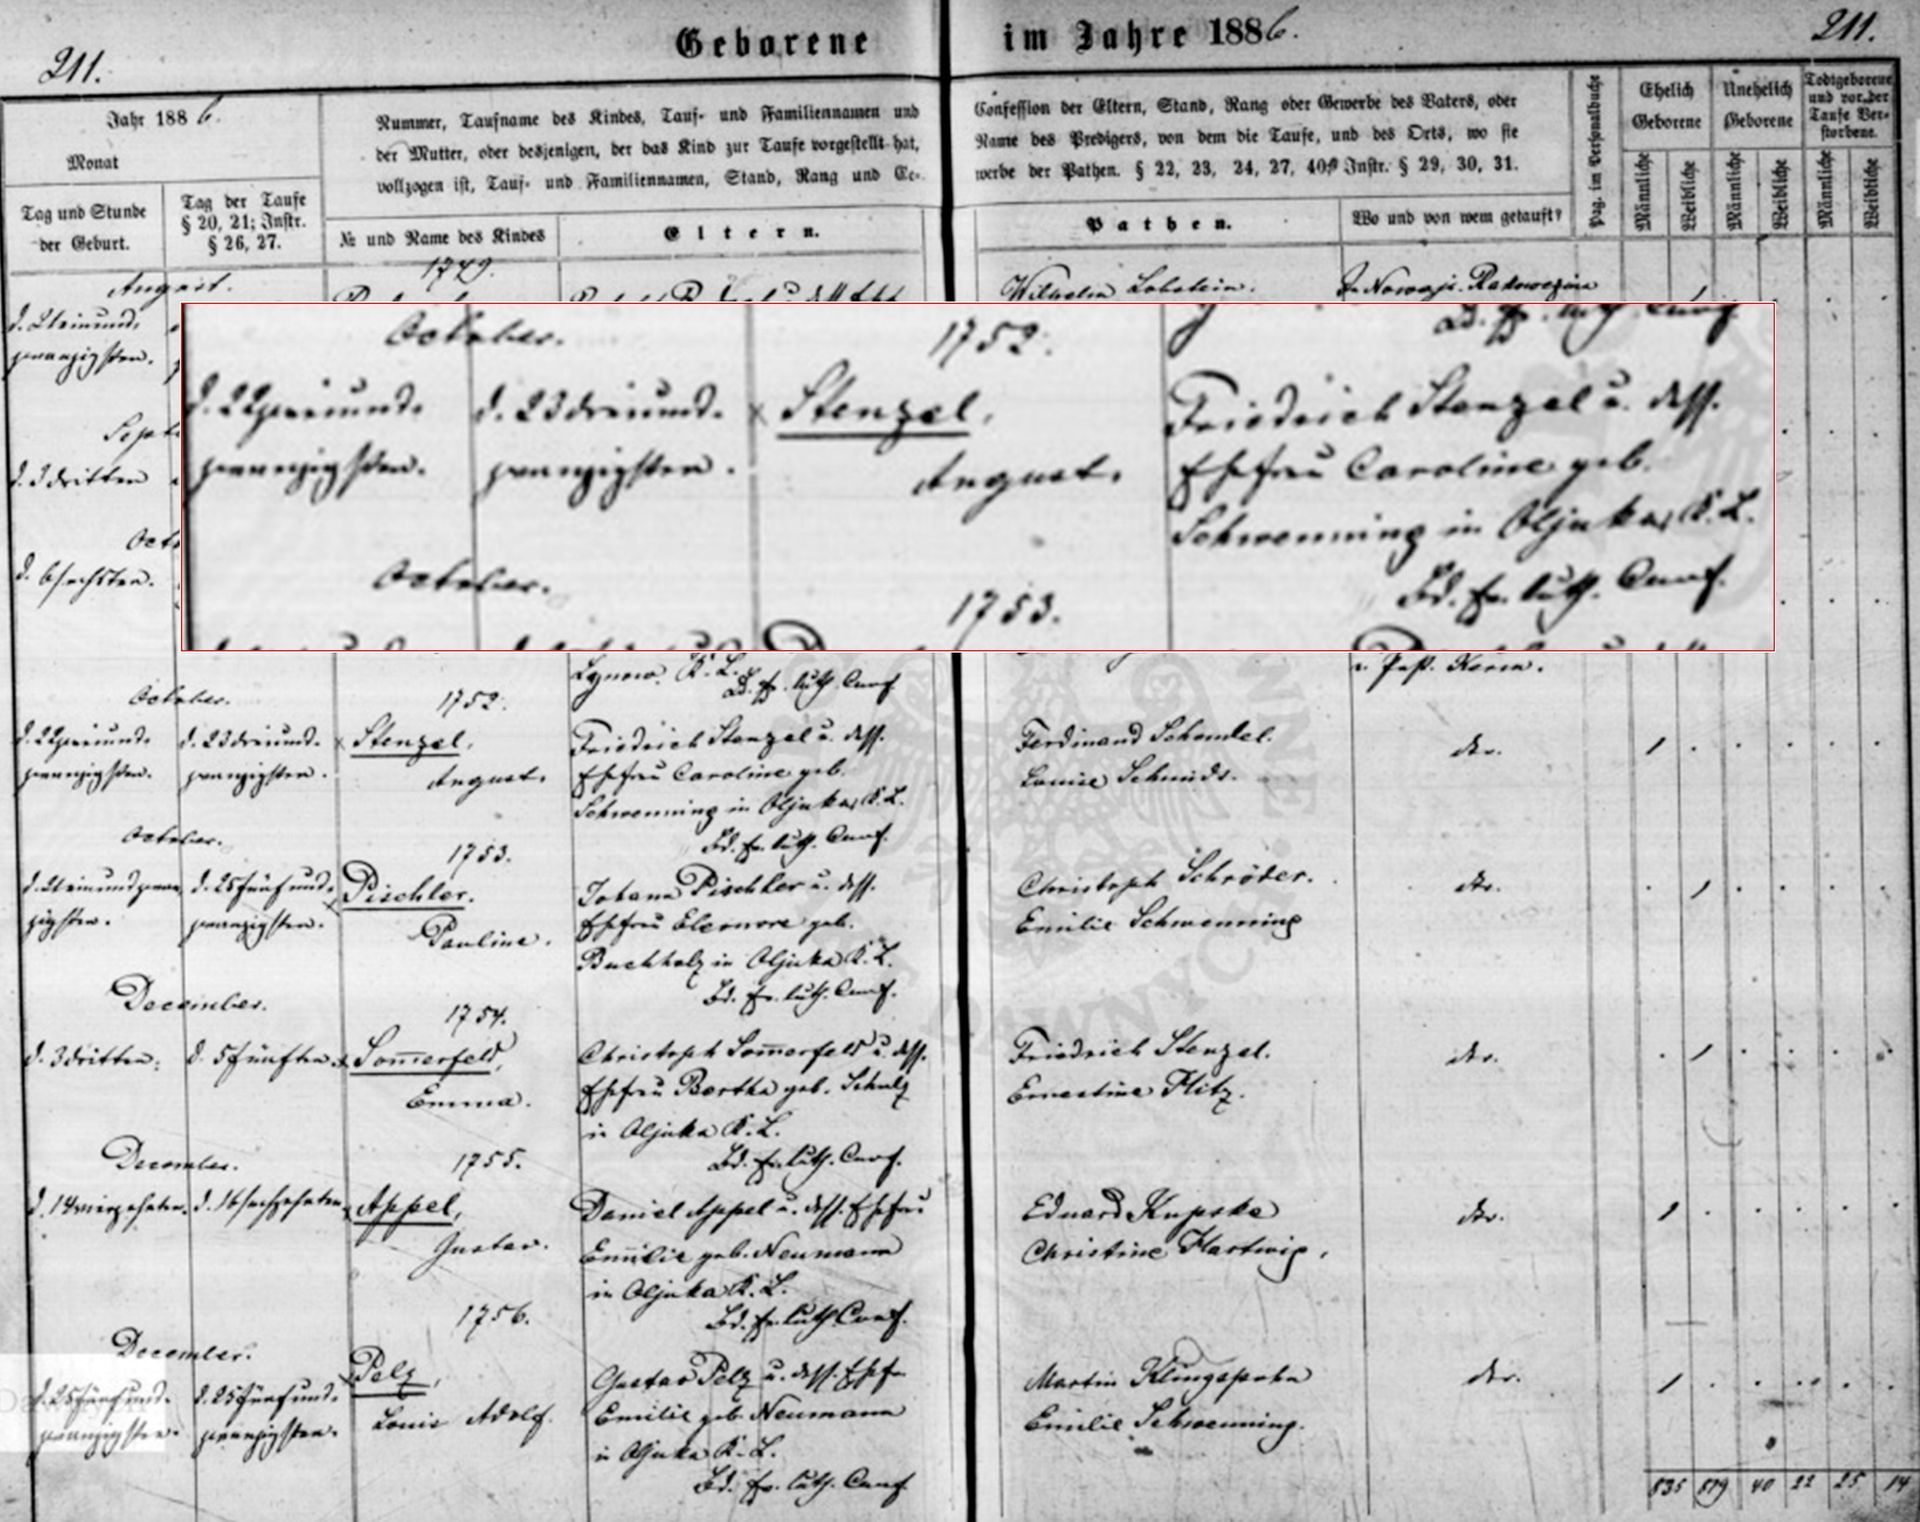 211.
Geborene
im Jahre 1886.
211.
Jahr 1886.
Monat
Tag und Stunde
der Geburt.
Tag der Taufe
§ 20, 21; Instr.
§ 26, 27.
Nummer, Taufname des Kindes, Tauf- und Familiennamen und
der Mutter, oder desjenigen, der das Kind zur Taufe vorgestellt hat,
vollzogen ist, Tauf- und Familiennamen, Stand, Rang und Ge-
№ und Name des Kindes
Eltern.
Confession der Eltern, Stand, Rang oder Gewerbe des Vaters, oder
Name des Predigers, von dem die Taufe, und des Orts, wo sie
werbe der Pathen. § 22, 23, 24, 27, 40; Instr. § 29, 30, 31.
Pathen.
Wo und von wem getauft?
Pag. im Personalbuche
Ehelich
Geborene
Unehelich
Geborene
Todtgeborene
und vor der
Taufe Ver-
storbene.
Männliche
Weibliche
Männliche
Weibliche
Männliche
Weibliche
August.
1749.
Wilhelm Lobstein.
d. 21 einund-
zwanzigsten.
Sept
d. 3 dritten
Oct
d. 6 sechsten.
October.
1752.
d. 22 zweiund-
zwanzigsten.
d. 23 dreiund-
zwanzigsten.
Stenzel,
August.
Friedrich Stenzel u. dess.
Ehefrau Caroline geb.
Schwenning in Oljuka, K. L.
Bd. ev. luth. Conf.
October.
1753.
Lynow. K. L.
Bd. ev. luth. Conf.
v. Past. Kerm.
October.
1752.
d. 22 zweiund-
zwanzigsten.
d. 23 dreiund-
zwanzigsten.
Stenzel,
August.
Friedrich Stenzel u. dess.
Ehefrau Caroline geb.
Schwenning in Oljuka, K. L.
Bd. ev. luth. Conf.
Ferdinand Schendel.
Louise Schmidt.
dto.
October.
1753.
d. 21 einundzwan-
zigsten.
d. 25 fünfund-
zwanzigsten.
Pischler.
Pauline.
Johann Pischler u. dess.
Ehefrau Eleonore geb.
Buchholz in Oljuka K. L.
Bd. ev. luth. Conf.
Christoph Schröder.
Emilie Schwenning
dto.
December.
1754.
d. 3 dritten.
d. 5 fünften.
Sommerfeld,
Emma.
Christoph Sommerfeld u. dess.
Ehefrau Bertha geb. Schulz
in Oljuka K. L.
Bd. ev. luth. Conf.
Friedrich Stenzel.
Ernestine Flitz.
dto.
December.
1755.
d. 14 vierzehnten.
d. 16 sechzehnten
Appel,
Gustav.
Daniel Appel u. dess. Ehefrau
Emilie geb. Neumann
in Oljuka K. L.
Bd. ev. luth. Conf.
Eduard Kupske
Christine Hartwig.
dto.
December.
1756.
d. 25 fünfund-
zwanzigsten.
d. 25 fünfund-
zwanzigsten.
Pelz,
Louis Adolf.
Gustav Pelz u. dess. Ehefr.
Emilie geb. Neumann
in Oljuka K. L.
Bd. ev. luth. Conf.
Martin Klingspohn
Emilie Schwenning.
dto.
835 819 40 22 25 14